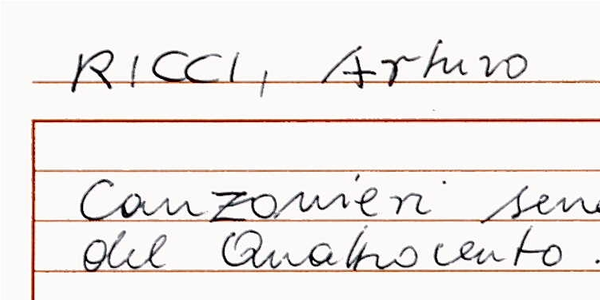 RICCI, Arturo
Canzonieri sene
del Quattrocento.